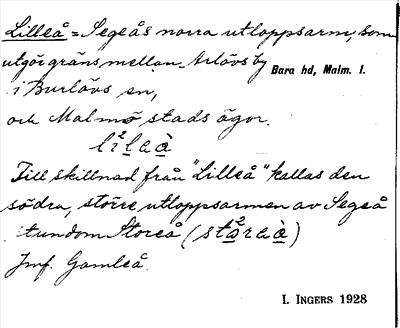 Lilleå = Segeås norra utloppsarm, som
utgör gräns mellan Arlövs by
Bara hd, Malm. l.
i Burlövs sn,
och Malmö stads ägor.
Till skillnad från "Lilleå" kallas den
södra, större utloppsarmen av Segeå
stundom Storeå (
Jmf. Gamleå.
I. INGERS 1928